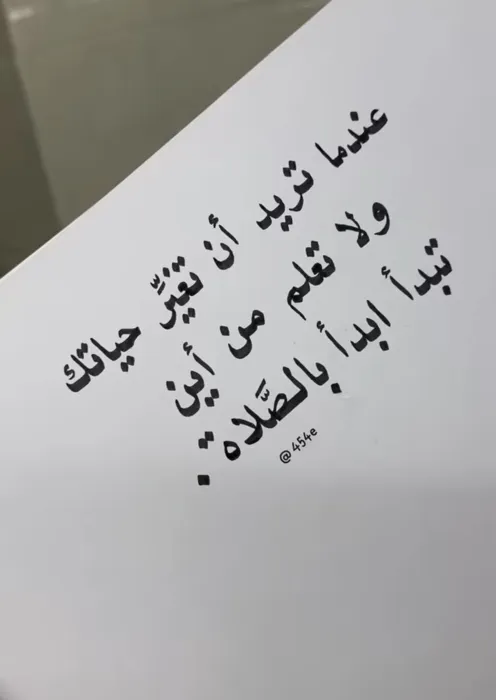 عندما تريد أن تغيَّر حياتك
ولا تعلم من أين
تبدأ ابدأ بالصَّلاة .
@454e